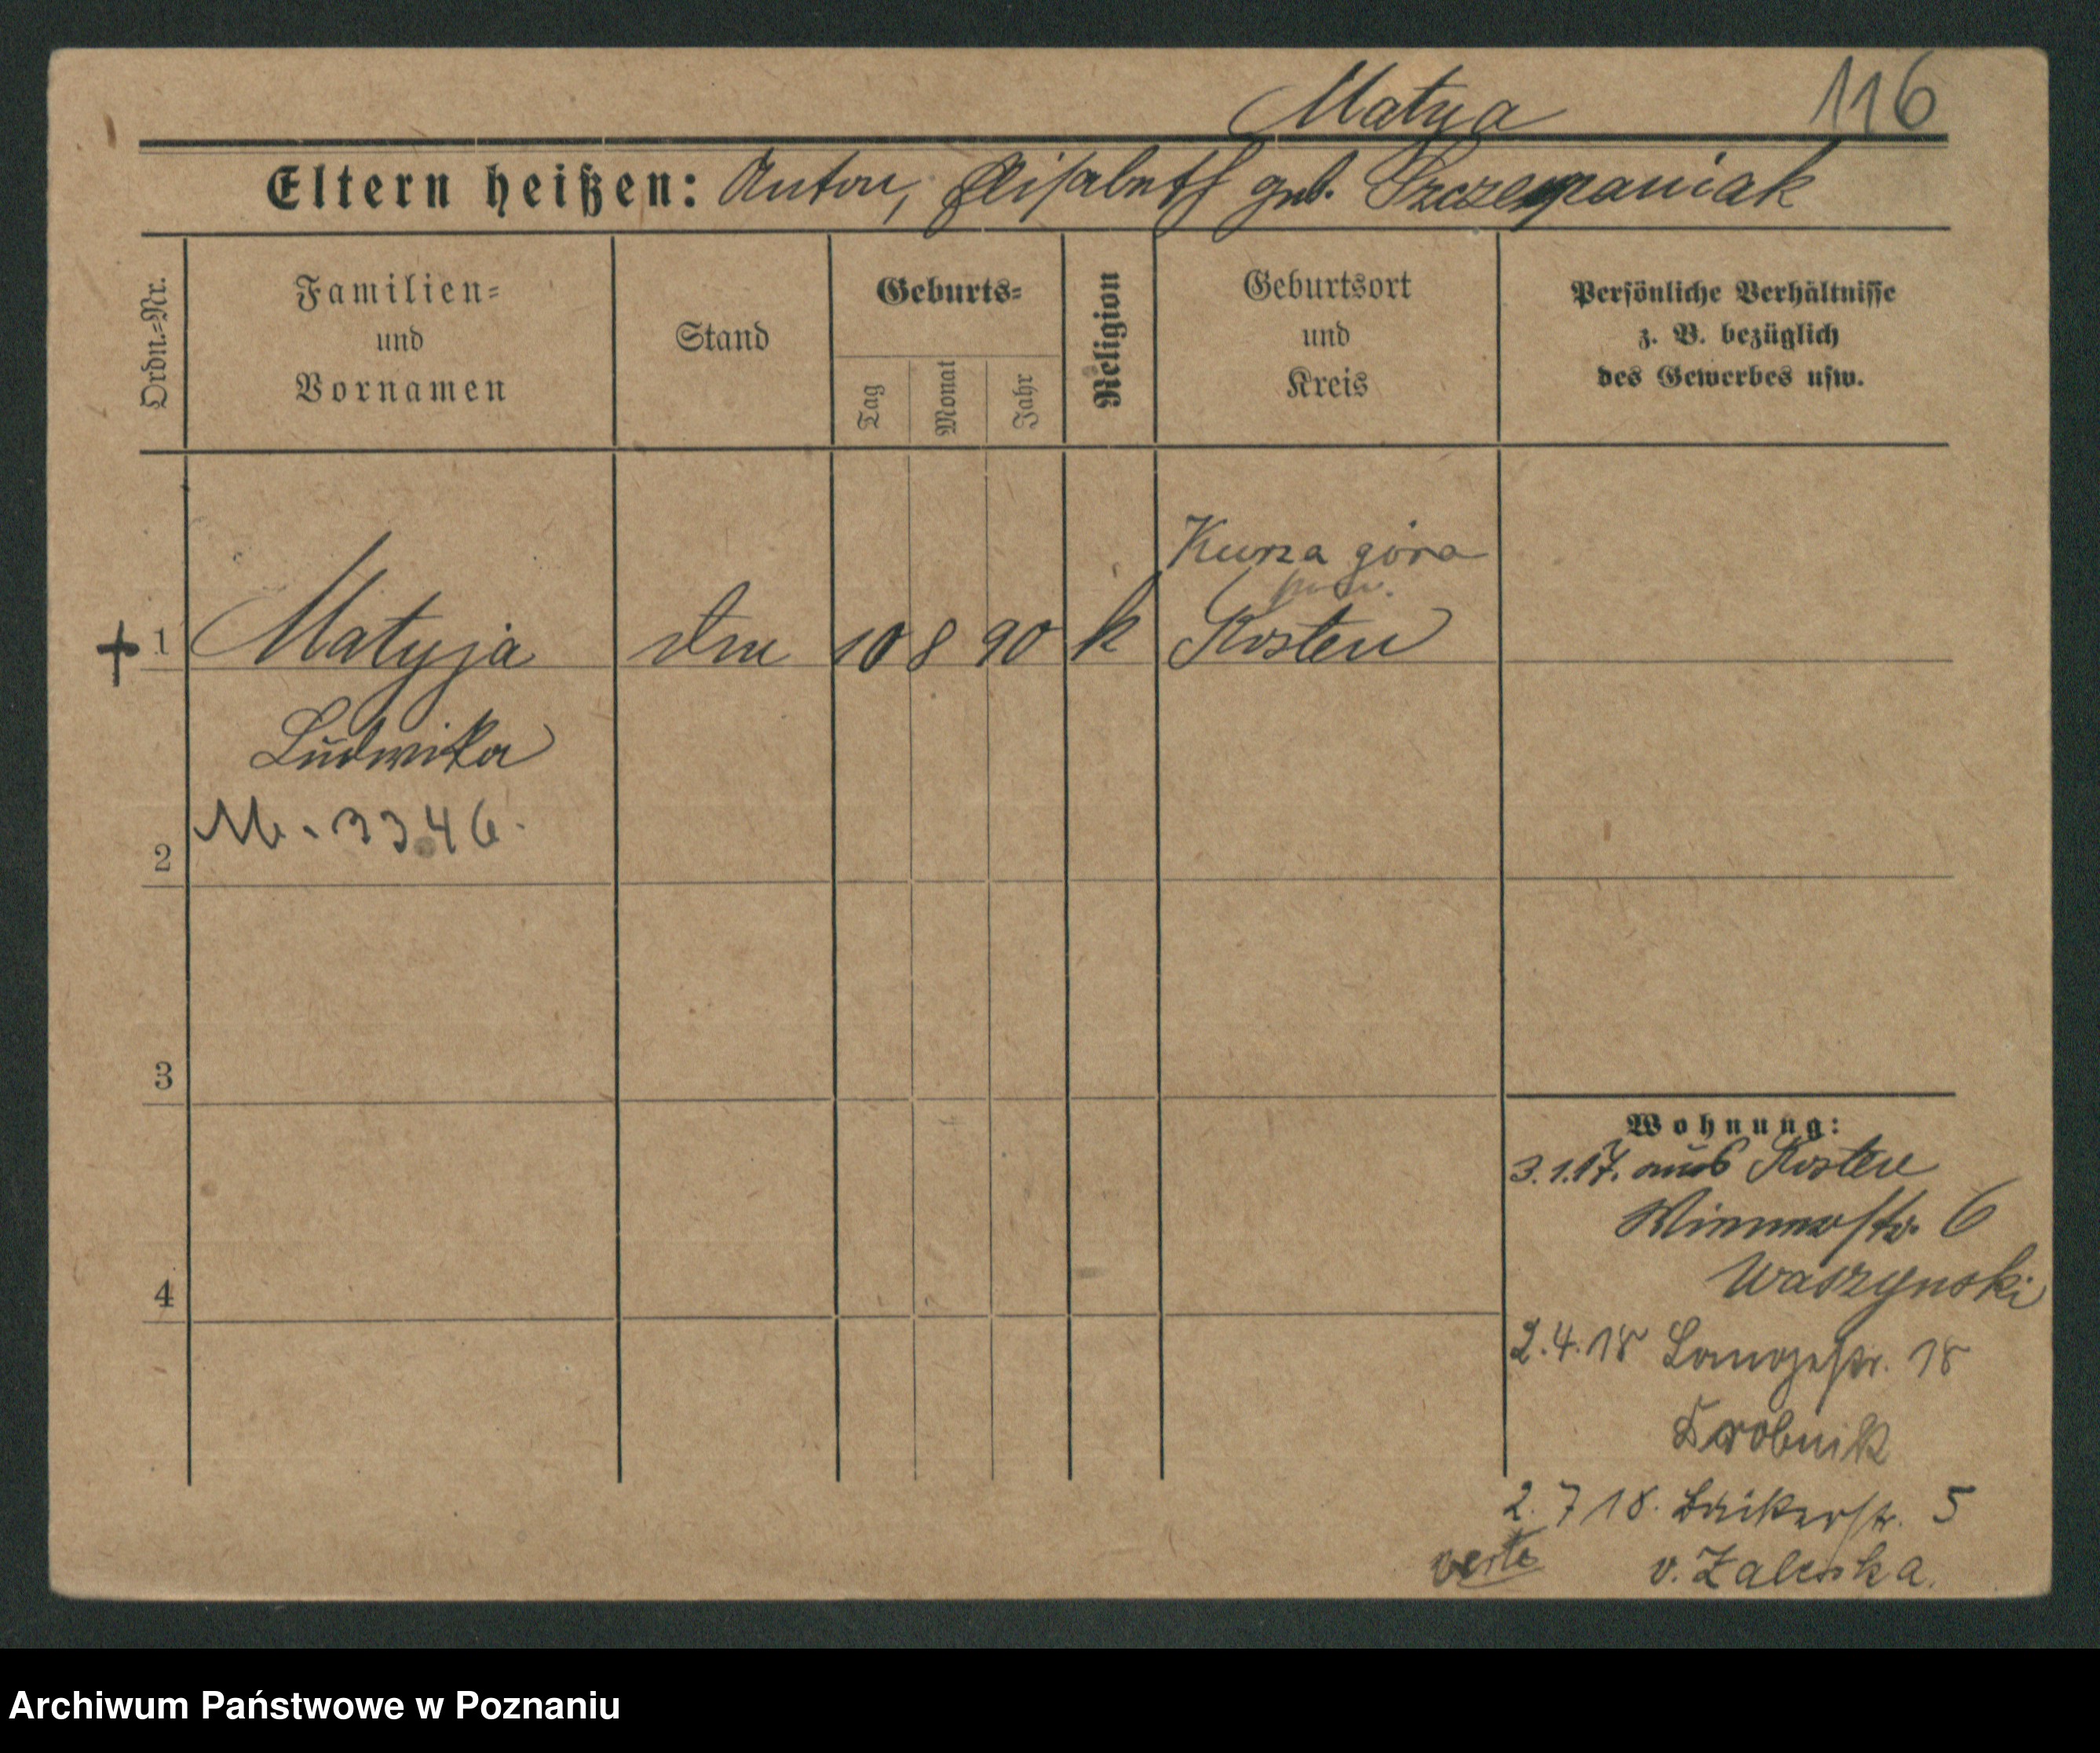 Matya 116
Eltern heißen: Anton, Elisabeth geb. Szczepaniak
Ordn.=Nr.
Familien=
und
Vornamen
Stand
Geburts=
Tag
Monat
Jahr
Religion
Geburtsort
und
Kreis
Persönliche Verhältnisse
z. B. bezüglich
des Gewerbes usw.
Kurza góra
+ 1 Matyja 10 8 90 k Kosten
Ludwika
2 M. 3346.
3
4
Wohnung:
3.1.17. aus Kosten
6
Waszynski
2.4.18 Langestr. 18
Drobnik
2. 7 18. Bäkerstr. 5
verte v. Zaleska.
Archiwum Państwowe w Poznaniu